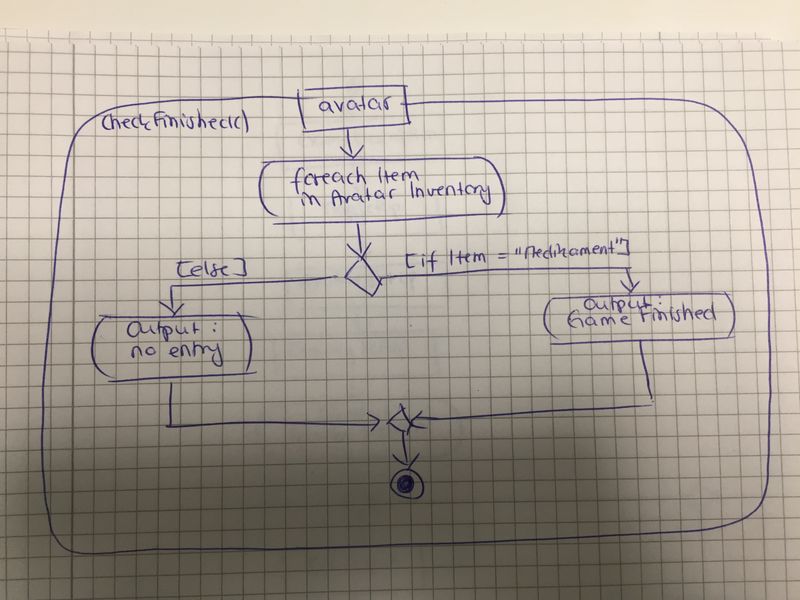 avatar
CheckFinished()
foreach Item
in Avatar Inventory
[else]
[if Item = "Medikament"]
Output :
no entry
Output :
Game Finished